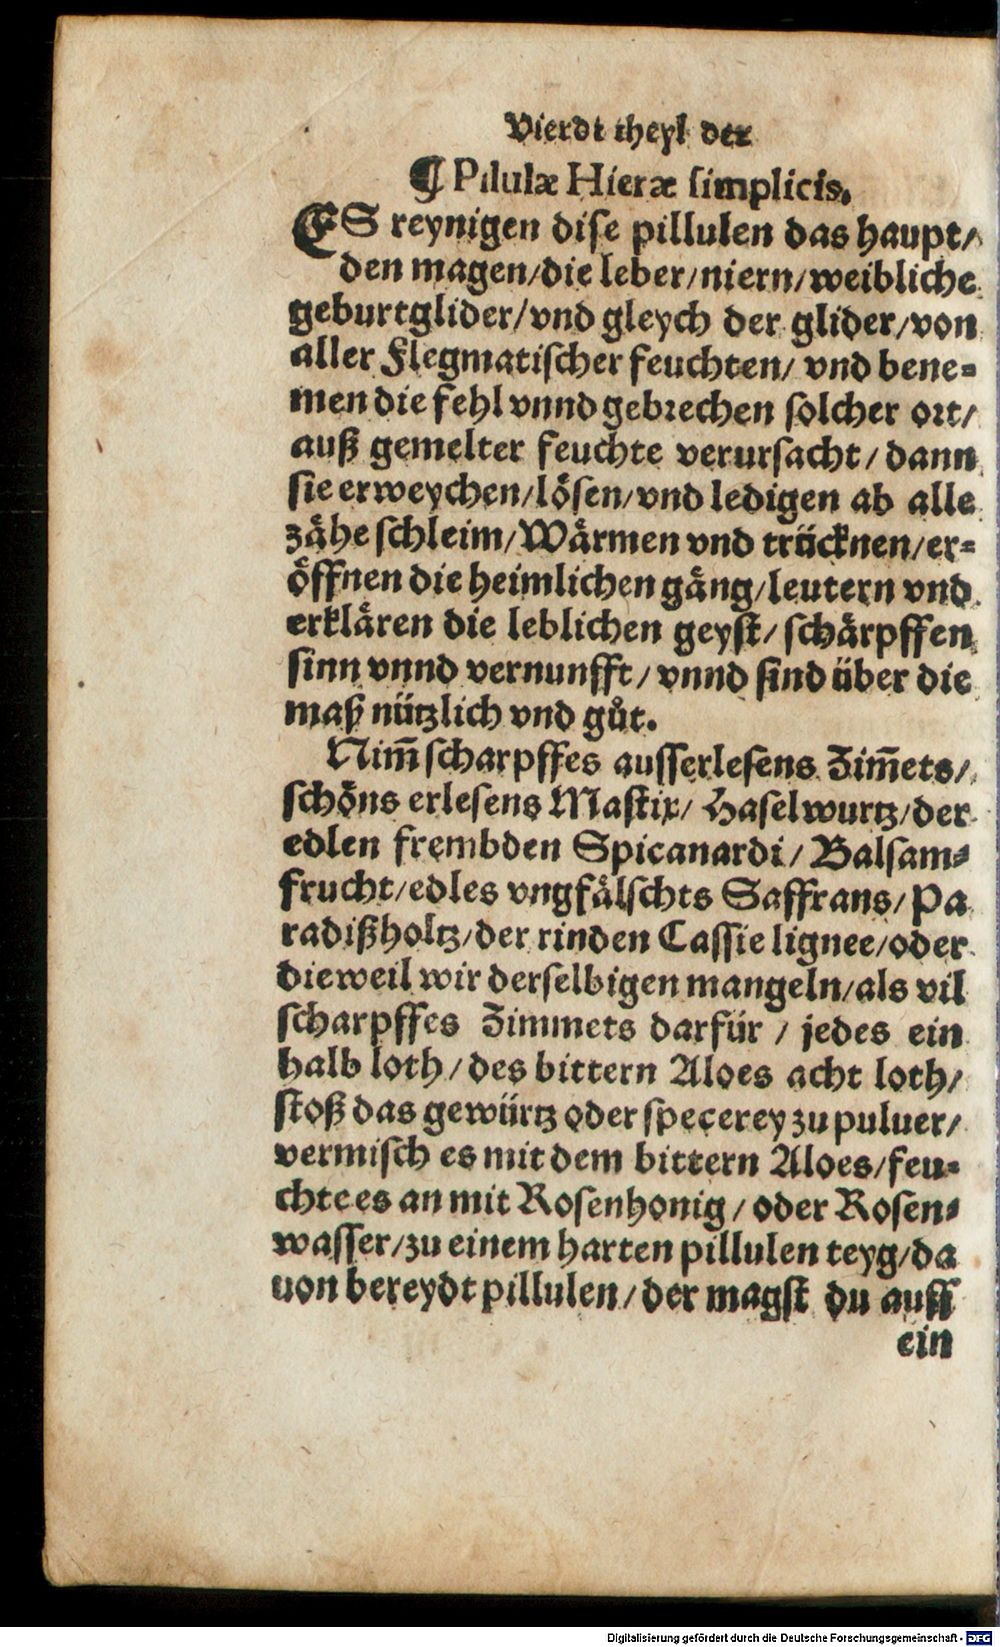 Vierdt theyl der
¶ Pilulæ Hieræ simplicis.
ES reynigen dise pillulen das haupt/
den magen/die leber/niern/weibliche
geburtglider/vnd gleych der glider/von
aller Flegmatischer feuchten/ vnd bene=
men die fehl vnnd gebrechen solcher ort/
auß gemelter feuchte verursacht/ dann
sie erweychen/lösen/vnd ledigen ab alle
zähe schleim/Wärmen vnd trücknen/er=
öffnen die heimlichen gäng/leutern vnd
erklären die leblichen geyst/ schärpffen
sinn vnnd vernunfft/ vnnd sind über die
maß nützlich vnd gůt.
Nim̃ scharpffes ausserlesens Zim̃ets/
schöns erlesens Mastix/ Haselwurtz/der
edlen frembden Spicanardi/ Balsam=
frucht/edles vngfälschts Saffrans/Pa
radißholtz/der rinden Cassie lignee/oder
dieweil wir derselbigen mangeln/als vil
scharpffes Zimmets darfür / jedes ein
halb loth/des bittern Aloes acht loth/
stoß das gewürtz oder specerey zu puluer/
vermisch es mit dem bittern Aloes/feu=
chte es an mit Rosenhonig/ oder Rosen=
wasser/zu einem harten pillulen teyg/da
uon bereydt pillulen/der magst du auff
ein
Digitalisierung gefördert durch die Deutsche Forschungsgemeinschaft - DFG